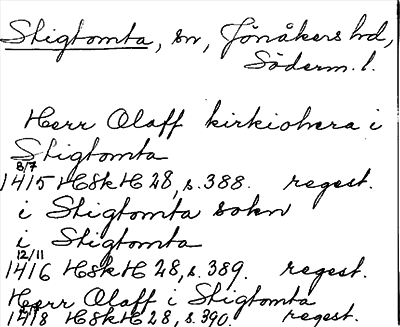 Stigtomta, sn, Jönåkers hd,
Söderm. l.
Herr Olaff kirkiohera i
Stigtomta
8/7
1415 HSkH 28, s. 388. regest.
i Stigtomta sokn
i Stigtomta
12/11
1416 HSkH 28, s. 389. regest.
Herr Olaff i Stigtomta
1418 HSkH 28, s. 390. regest.